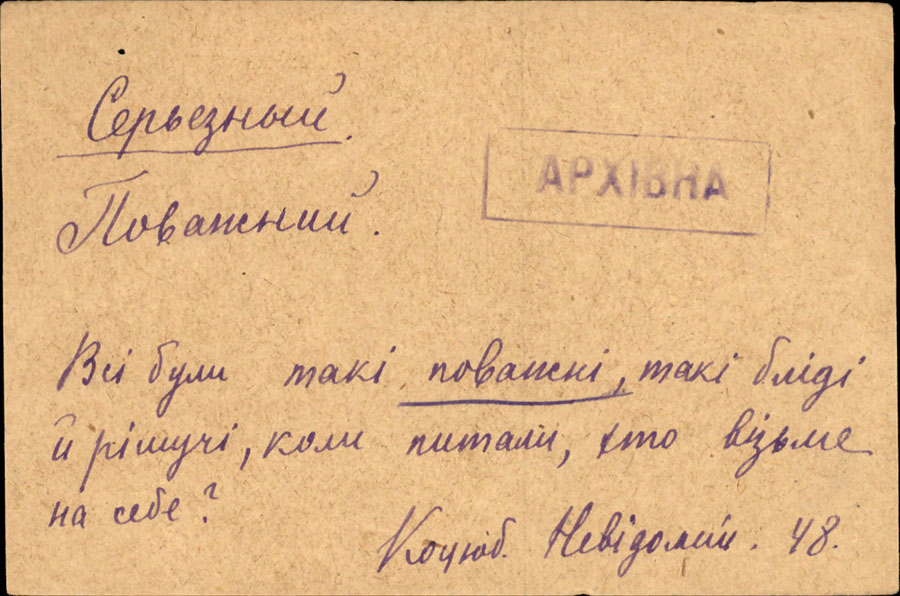 Серьезный.
АРХІВНА
Поважний.
Всі були такі поважні, такі бліді
й рішучі, коли питали, хто візьме
на себе?
Коцюб. Невідомий. 48.